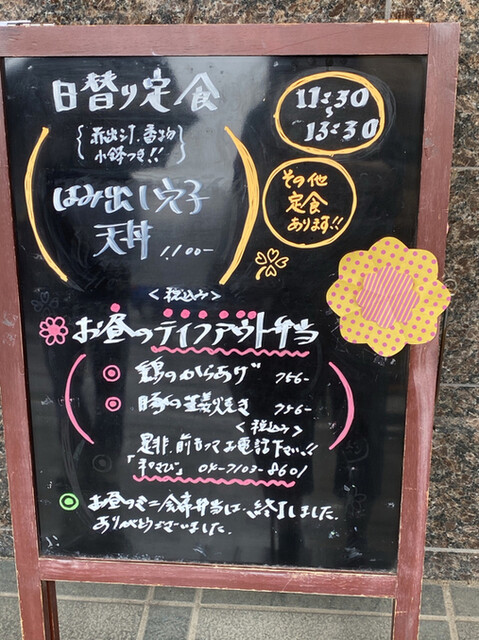 日替り定食
11:30
〜
13:30
{赤出汁、香物
小鉢つき!!}
はみ出し穴子
天丼 1,100-
その他
定食
あります!!
<税込み>
お昼のテイクアウト弁当
鶏のからあげ 756-
豚の生姜焼き 756-
<税込み>
是非、前もってお電話下さい!!
「和さび」 04-7103-8601
お昼のミニ会席弁当は、終了しました。
ありがとうございました。